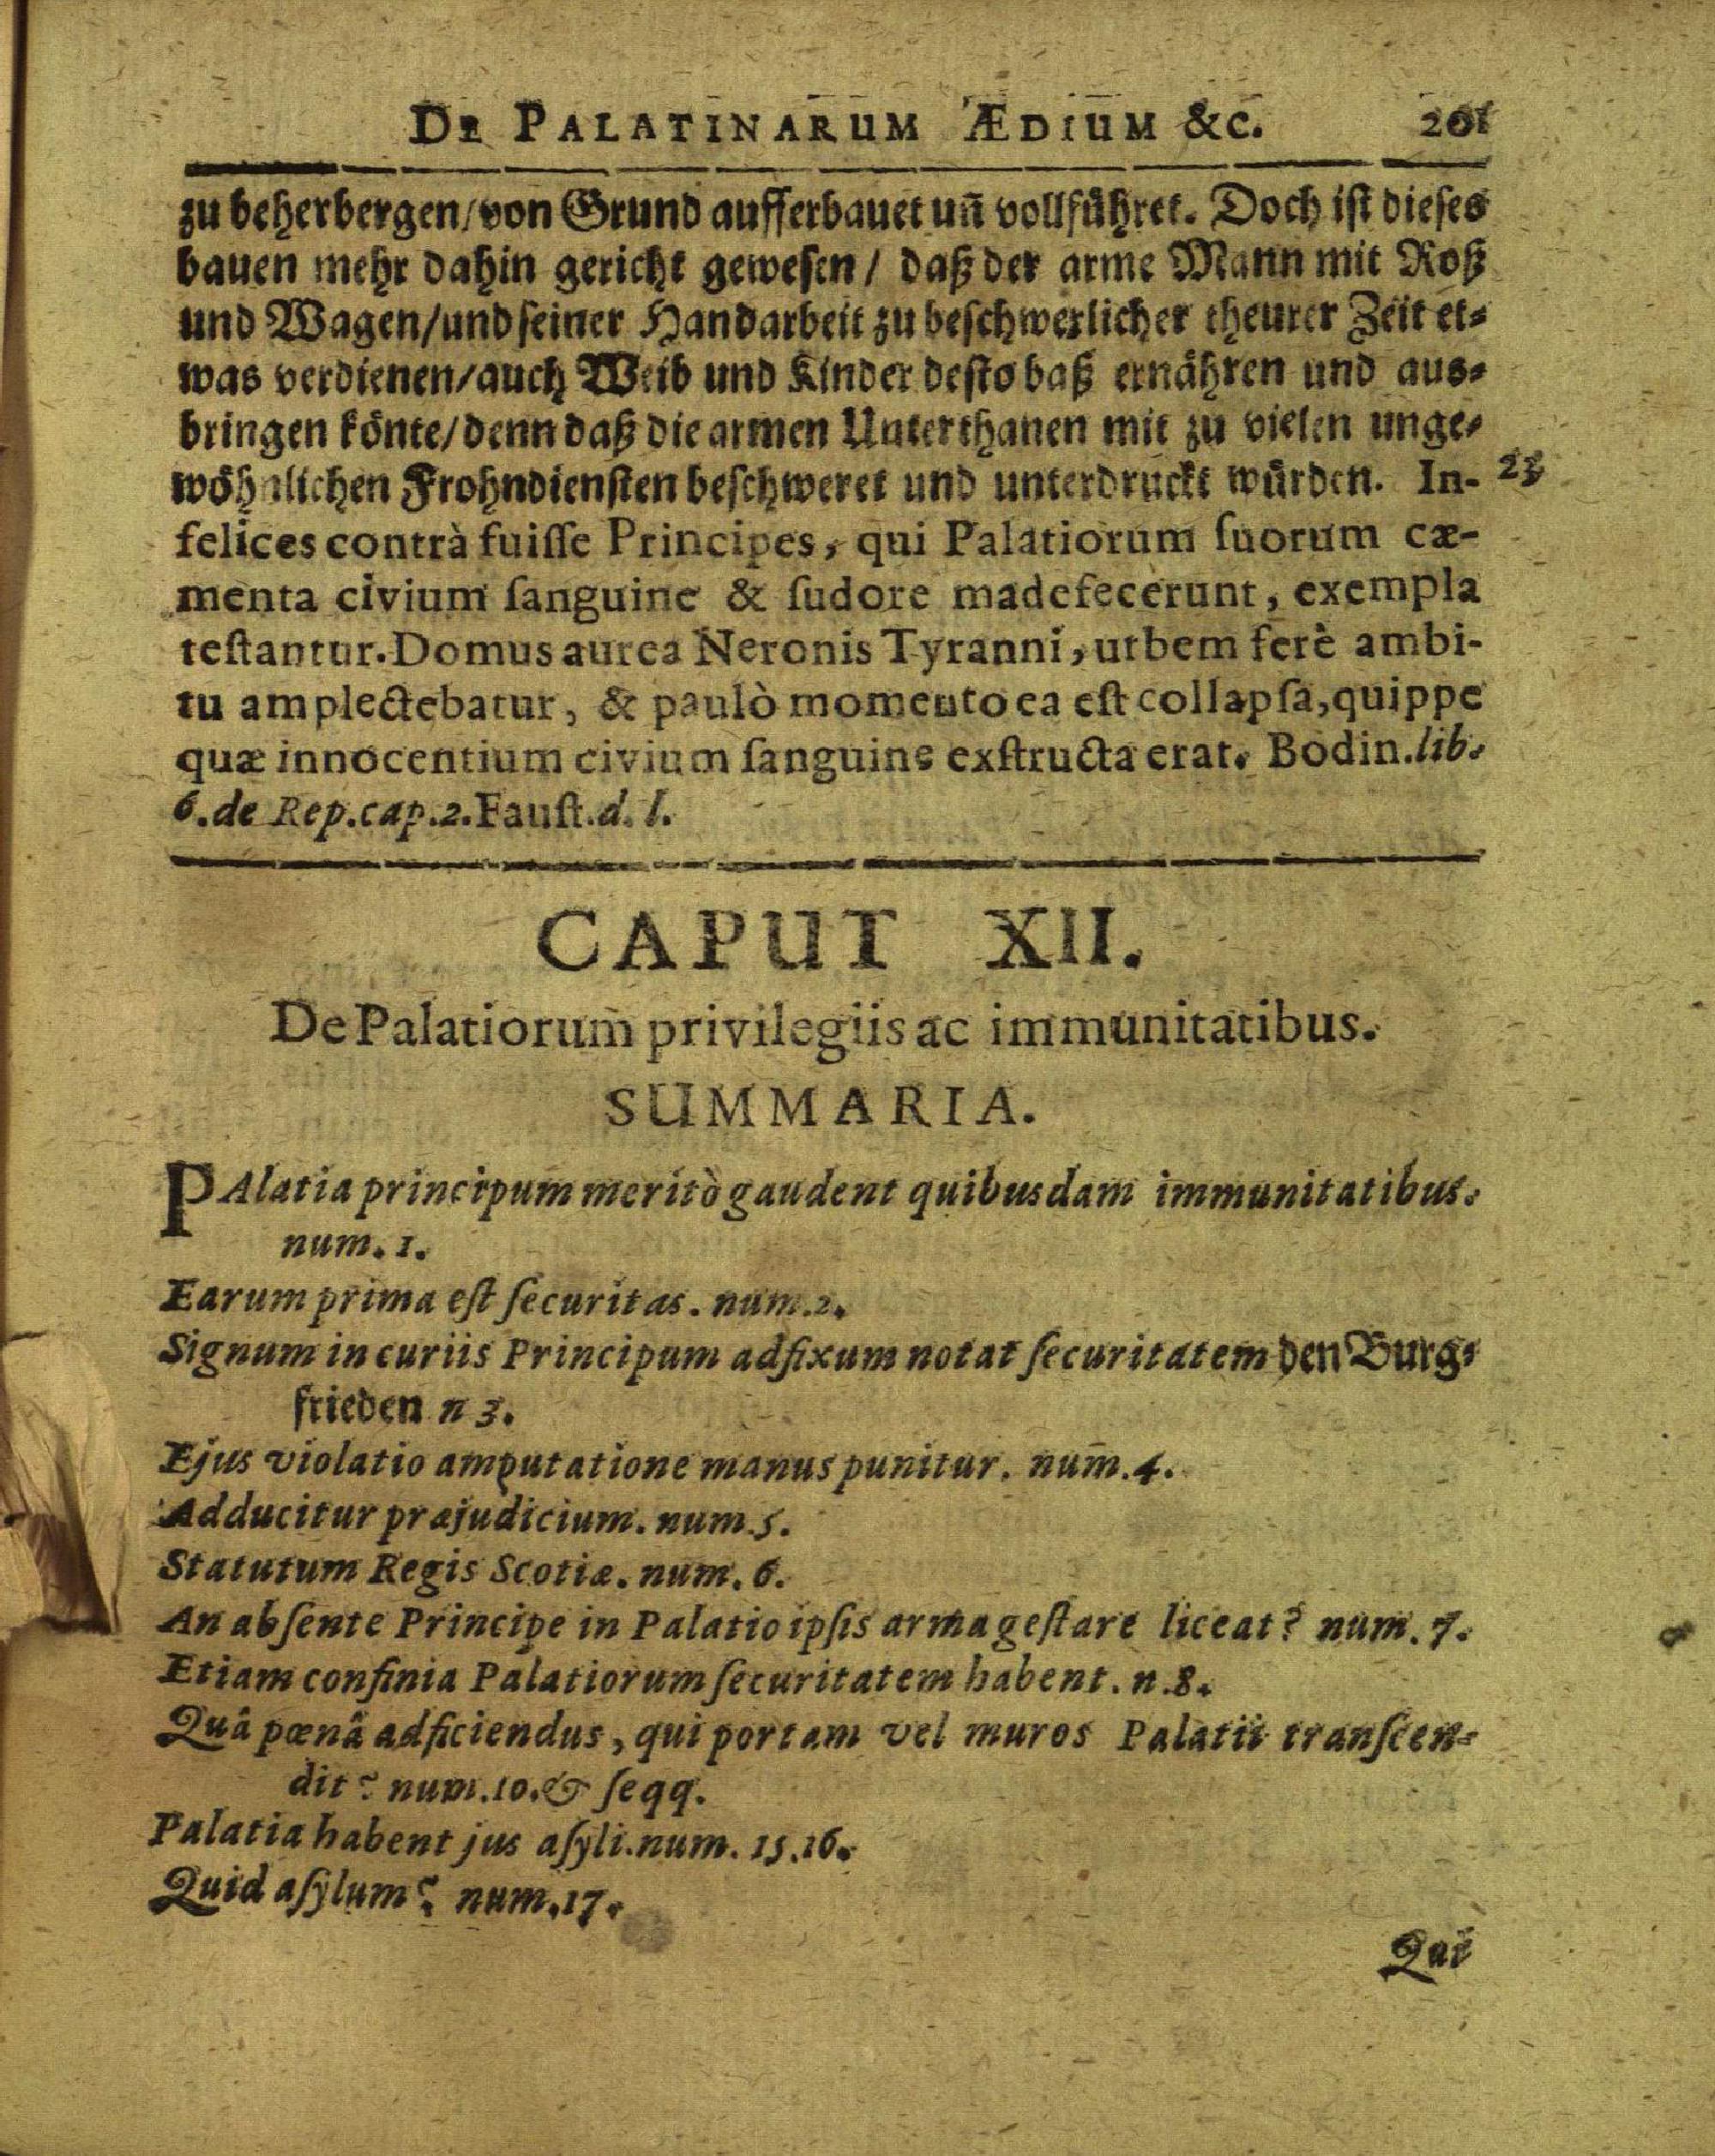 DE PALATINARUM ÆDIUM &c. 201
zu beherbergen/von Grund aufferbauet uñ vollführet. Doch ist dieses
bauen mehr dahin gericht gewesen/ daß der arme Mann mit Roß
und Wagen/und seiner Handarbeit zu beschwerlicher theurer Zeit et-
was verdienen/auch Weib und Kinder desto baß ernähren und aus-
bringen könte/denn daß die armen Unterthanen mit zu vielen unge-
wöhnlichen Frohndiensten beschweret und unterdruckt würden. In- 23
felices contrà fuiſſe Principes, qui Palatiorum ſuorum cæ-
menta civium ſanguine & ſudore madefecerunt, exempla
teſtantur. Domus aurea Neronis Tyranni, urbem ferè ambi-
tu amplectebatur, & paulò momento ea eſt collapſa, quippe
quæ innocentium civium ſanguine exſtructa erat. Bodin. lib.
6. de Rep. cap. 2. Fauſt. d. l.
CAPUT XII.
De Palatiorum privilegiis ac immunitatibus.
SUMMARIA.
PAlatia principum meritò gaudent quibusdam immunitatibus.
num. 1.
Earum prima eſt ſecuritas. num. 2.
Signum in curiis Principum adfixum notat ſecuritatem den Burg-
frieden n 3.
Ejus violatio amputatione manus punitur. num. 4.
Adducitur præjudicium. num. 5.
Statutum Regis Scotiæ. num. 6.
An abſente Principe in Palatio ipſis arma geſtare liceat? num. 7.
Etiam confinia Palatiorum ſecuritatem habent. n. 8.
Quâ pœnâ adficiendus, qui portam vel muros Palatii tranſcen-
dit? num. 10. & ſeqq.
Palatia habent jus aſyli. num. 15. 16.
Quid aſylum? num. 17.
Qui